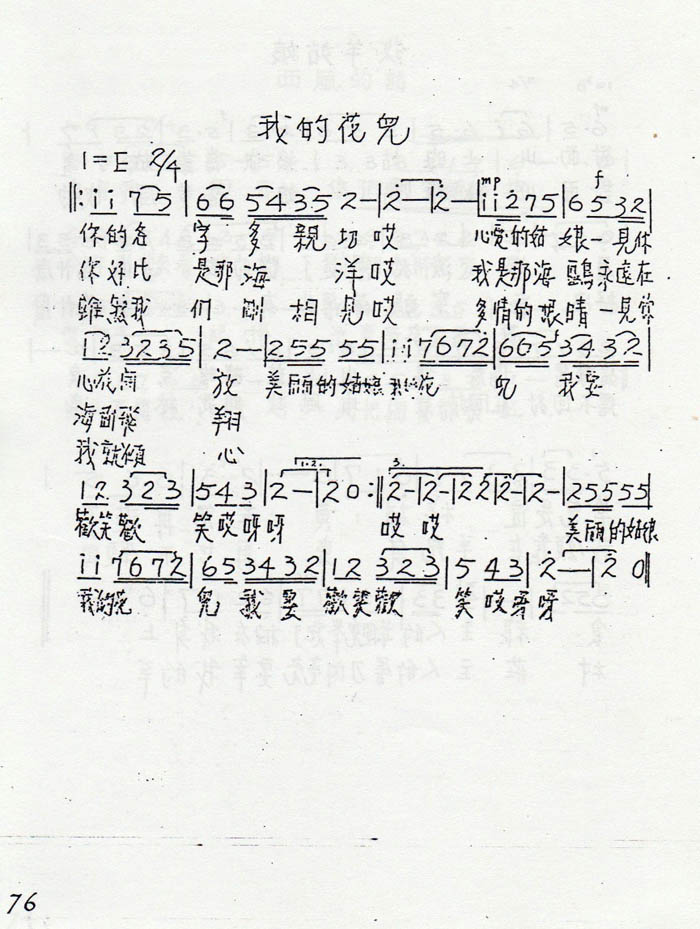 我的花兒
1=E 2/4
‖: i i 7 5 | 6 6 5 4 3 5 2 - | 2 - | 2 - | i i 2 7 5 | 6 5 3 2 |
mp f
你的名 字 多 親 切 哎 心愛的姑 娘 一見你
你好比 是那 海 洋 哎 我是那海 鷗永遠在
雖然我 們 剛 相 見 哎 多情的眼 睛 一見你
i 2 3 2 3 5 | 2 - | 2 5 5 5 5 5 | i i 7 6 7 2 | 6 6 5 3 4 3 2 |
心花開 放 美丽的姑娘 我的花 兒 我要
海面飛 翔
我就傾 心
1 2 3 2 3 | 5 4 3 | 2 - | 2 0 :‖ 2 - | 2 - | 2 2 | 2 - | 2 - | 2 5 5 5 5 |
1.2. 3.
歡笑歡 笑哎呀呀 哎 哎 美丽的姑娘
i i 7 6 7 2 | 6 5 3 4 3 2 | 1 2 3 2 3 | 5 4 3 | 2 - | 2 0 ‖
我的花 兒 我 要 歡笑歡 笑 哎呀呀
76